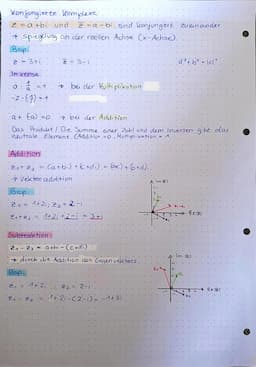 Konjungierte Komplexe
z = a+bi und z̅ = a-bi sind konjungiert zueinander
→ Spiegelung an der reellen Achse (x-Achse)
Bsp:
z = 3+i z̅ = 3-i
Inverse
→ bei der Multiplikation
a + (-a) = 0 → bei der Addition
Das Produkt / Die Summe einer Zahl und dem Inversen gibt das
neutrale Element. (Addition = 0, Multiplikation = 1
Addition
z₁+z₂ = (a+bi) + (c+di) = (a+c)+(b+d)i
→ Vektoraddition
Bsp:
z₁ = 1+2i; z₂ = 2-i
z₁+z₂ = 1+2i+2-i = 3+i
Subtraktion:
z₁-z₂ = a+bi-(c+di)
→ durch die Addition des Gegenvektors
Bsp:
z₁ = 1+2i; z₂ = 2-i
z₁-z₂ = 1+2i-(2-i) = -1+3i